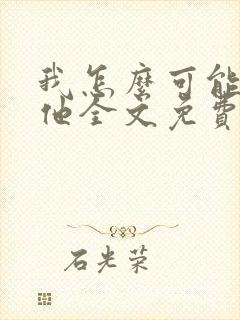 我怎麼可能
他全文免費
石光荣